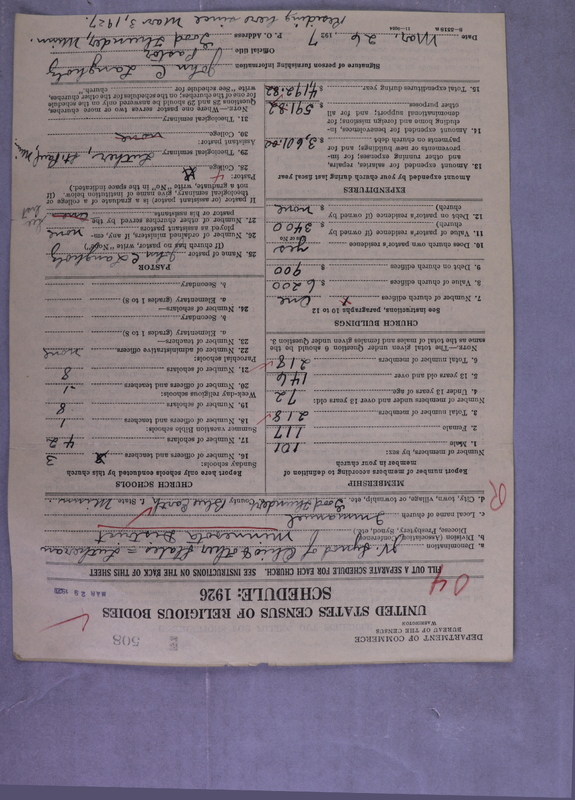 DEPARTMENT OF COMMERCE
BUREAU OF THE CENSUS
WASHINGTON
508
UNITED STATES CENSUS OF RELIGIOUS BODIES
SCHEDULE: 1926
MAR 29 1927
04
FILL OUT A SEPARATE SCHEDULE FOR EACH CHURCH. SEE INSTRUCTIONS ON THE BACK OF THIS SHEET
a. Denomination Synod of Ohio & other States = Lutheran
b. Division (Association, Conference, Diocese, Presbytery, Synod, etc.) Minnesota District
c. Local name of church Immanuel
d. City, town, village, or township, etc. Good Thunder County Blue Earth State Minn
R
MEMBERSHIP
Report number of members according to definition of member in your church
Number of members, by sex:
1. Male 101
2. Female 117
3. Total number of members 218
Number of members under and over 13 years old:
4. Under 13 years of age 72
5. 13 years old and over 146
6. Total number of members 218
NOTE.—The total given under Question 6 should be the same as the total of males and females given under Question 3.
CHURCH BUILDINGS
See instructions, paragraphs 10 to 12
7. Number of church edifices One
8. Value of church edifices $ 6200
9. Debt on church edifices $ 900
10. Does church own pastor's residence yes
(Yes or No)
11. Value of pastor's residence (if owned by church) $ 3400
12. Debt on pastor's residence (if owned by church) $ none
EXPENDITURES
Amount expended by your church during last fiscal year
13. Amount expended for salaries, repairs, and other running expenses; for improvements or new buildings; and for payments on church debt $ 3,601.00
14. Amount expended for benevolences, including home and foreign missions; for denominational support; and for all other purposes $ 591.82
15. Total expenditures during year $ 4,192.82
CHURCH SCHOOLS
Report here only schools conducted by this church
Sunday schools:
16. Number of officers and teachers 3
17. Number of scholars 42
Summer vacation Bible schools:
18. Number of officers and teachers 1
19. Number of scholars 8
Week-day religious schools:
20. Number of officers and teachers 1
21. Number of scholars 8
Parochial schools:
22. Number of administrative officers none
23. Number of teachers—
a. Elementary (grades 1 to 8)
b. Secondary
24. Number of scholars—
a. Elementary (grades 1 to 8)
b. Secondary
PASTOR
25. Name of pastor John C Langholz
(If church has no pastor, write "No")
26. Number of ordained ministers, if any, employed as assistants none
27. Number of other churches served by the pastor or his assistants
If pastor (or assistant pastor) is a graduate of a college or theological seminary, give name of institution below. (If not a graduate, write "No" in the space indicated.)
Pastor:
28. College
29. Theological seminary Luther, St. Paul, Minn.
Assistant pastor:
30. College none
31. Theological seminary
NOTE.—Where one pastor serves two or more churches, Questions 28 and 29 should be answered only on the schedule for one of the churches; on the schedules for the other churches, write "See schedule for church."
Signature of person furnishing information John C Langholz
Official title Pastor
P. O. Address Good Thunder, Minn.
Date Mar. 26 1927
Residing here since Mar 3, 1927.